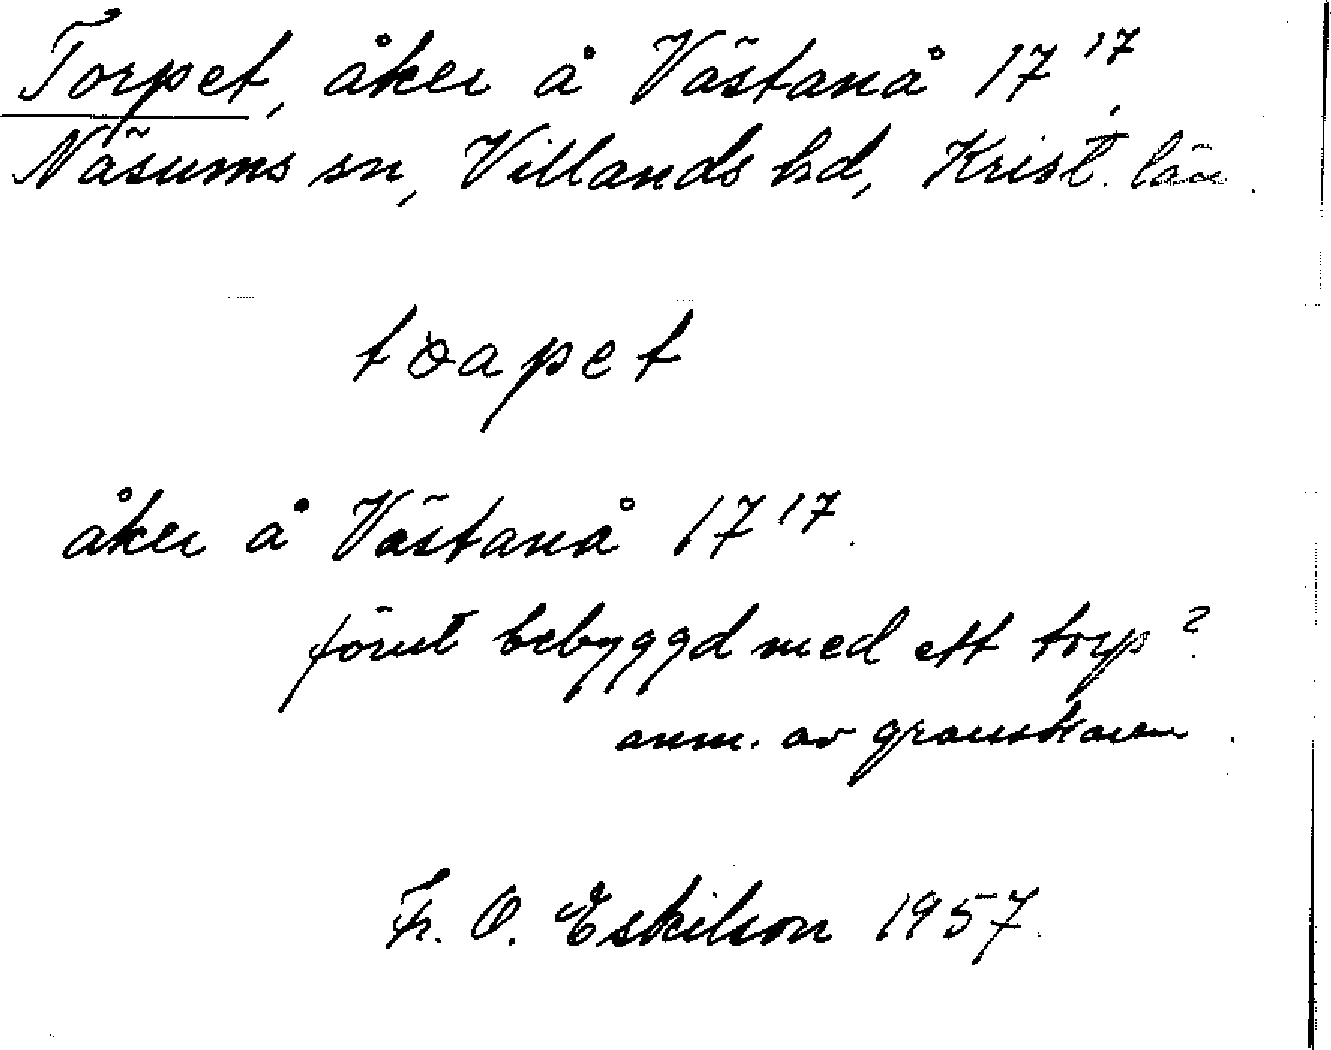 Torpet, åker å Västanå 17¹⁷,
Näsums sn, Villands hd, Krist. län.
toapet
åker å Västanå 17¹⁷.
förut bebyggd med ett torp?
anm. av granskaren.
Fr. O. Eskilson 1957.